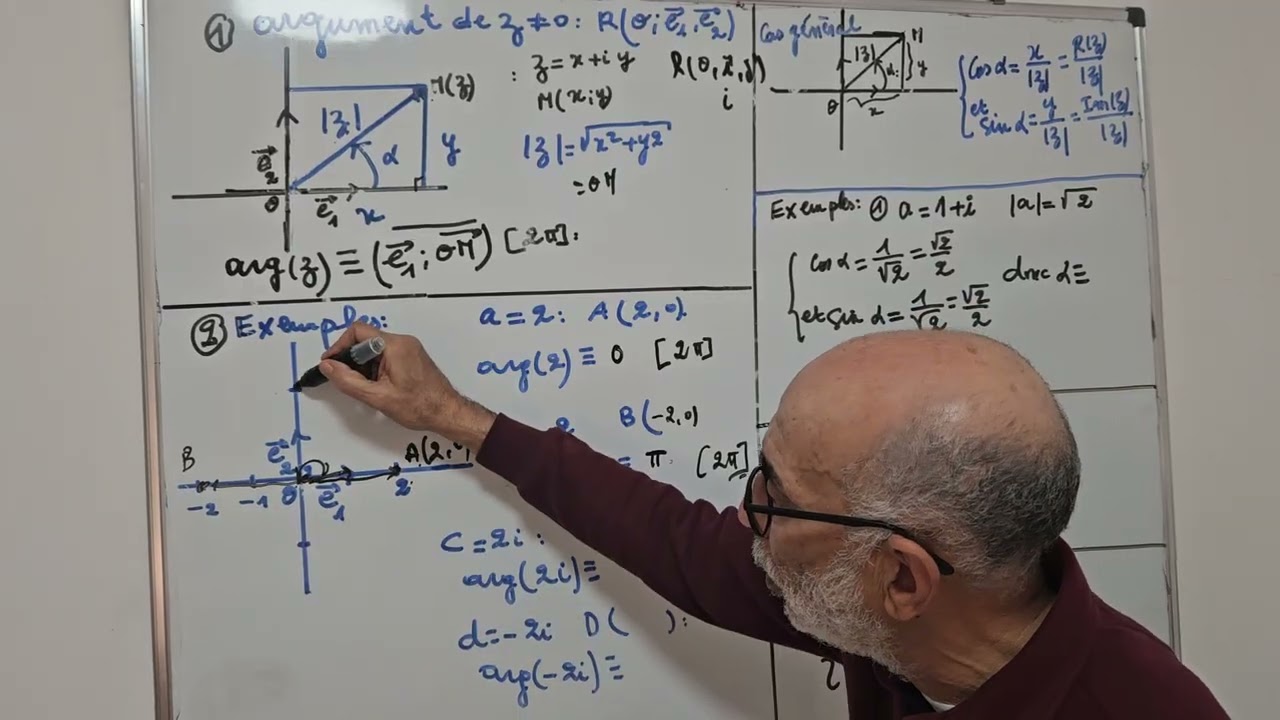 ① argument de z ≠ 0 : R(O; e⃗₁, e⃗₂)
M(z)
|z|
α
y
e⃗₂
O
e⃗₁
x
: z = x + i y
M(x; y)
R(O, x⃗, y⃗)
i
|z| = √x² + y²
= OM
arg(z) ≡ (e⃗₁; OM⃗) [2π] :
Cas général
M
|z|
α
y
O
x
cos α = x/|z| = R(z)/|z|
et
sin α = y/|z| = Im(z)/|z|
Exemples: ① a = 1 + i |a| = √2
cos α = 1/√2 = √2/2
et sin α = 1/√2 = √2/2
donc α ≡
② Exemples:
a = 2 : A(2, 0)
arg(2) ≡ 0 [2π]
B(-2, 0)
≡ π [2π]
B
e⃗₂
A(2,
-2 -1 O e⃗₁ 2
c = 2i :
arg(2i) ≡
d = -2i D( ) :
arg(-2i) ≡